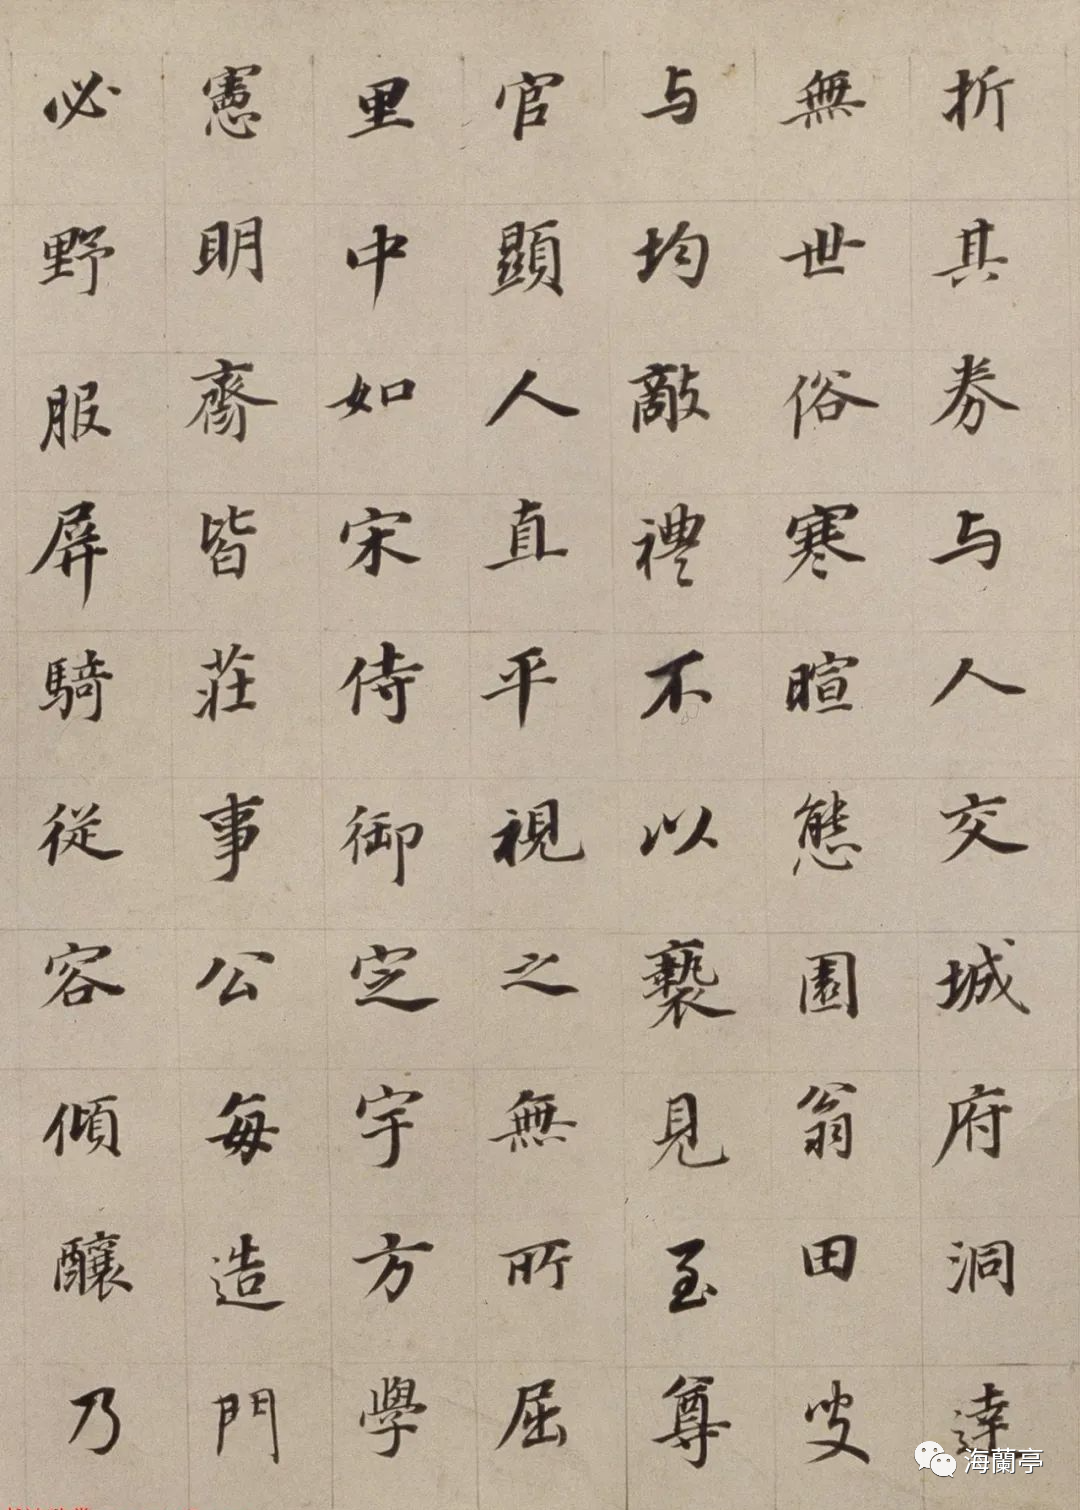 折其券与人交城府洞達
無世俗寒暄態園翁田叟
与均敵禮不以褻見至尊
官顯人直平視之無所屈
里中如宋侍御㝎宇方學
憲明齋皆莊事公每造門
必野服屏騎從容傾釀乃
海蘭亭